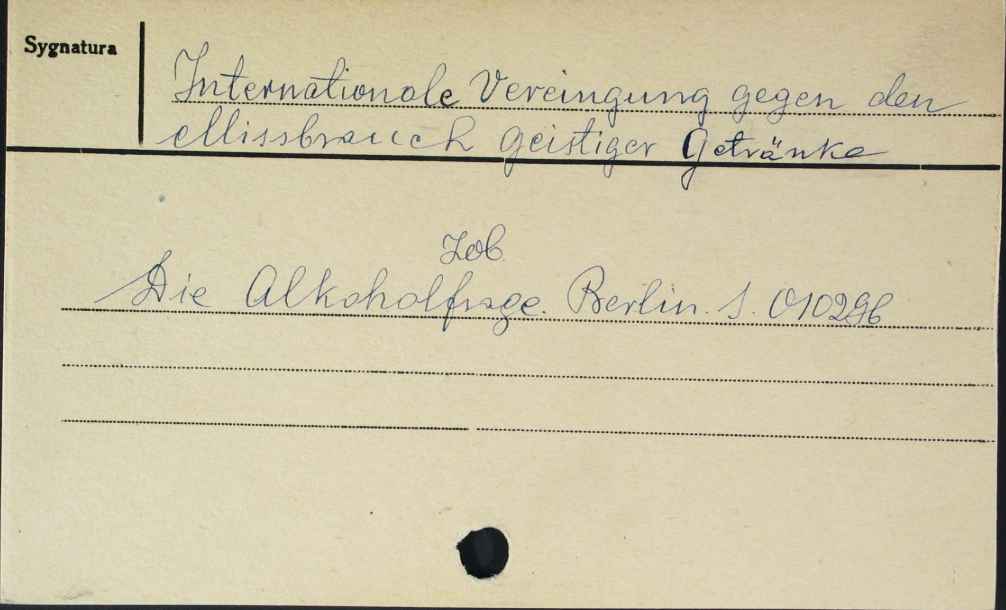 Sygnatura
Internationale Vereingung gegen den
Missbrauch geistiger Getränke
Zob.
Die Alkoholfrage. Berlin. S. 010296